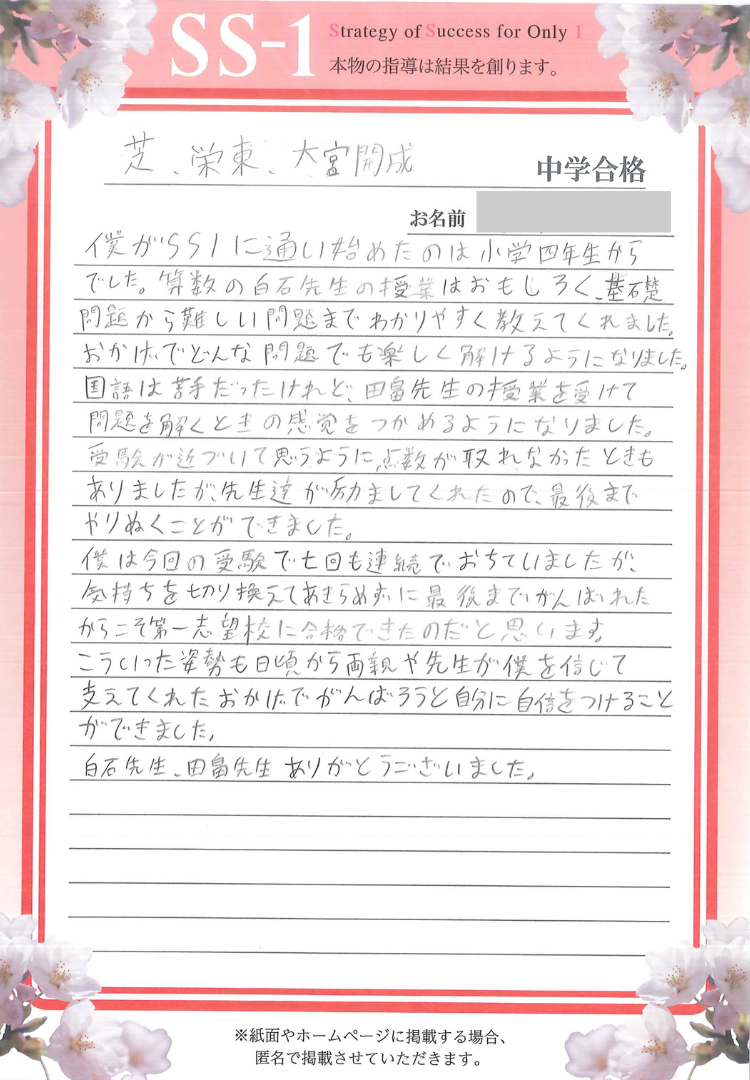 SS-1
Strategy of Success for Only 1
本物の指導は結果を創ります。
芝、栄東、大宮開成
中学合格
お名前
僕がSS1に通い始めたのは小学四年生から
でした。算数の白石先生の授業はおもしろく、基礎
問題から難しい問題までわかりやすく教えてくれました。
おかげでどんな問題でも楽しく解けるようになりました。
国語は苦手だったけれど、田畠先生の授業を受けて
問題を解くときの感覚をつかめるようになりました。
受験が近づいて思うように点数が取れなかったときも
ありましたが、先生達が励ましてくれたので、最後まで
やりぬくことができました。
僕は今回の受験で七回も連続でおちていましたが、
気持ちを切り換えてあきらめずに最後までがんばれた
からこそ第一志望校に合格できたのだと思います。
こういった姿勢も日頃から両親や先生が僕を信じて
支えてくれたおかげでがんばろうと自分に自信をつけること
ができました。
白石先生、田畠先生ありがとうございました。
※紙面やホームページに掲載する場合、
匿名で掲載させていただきます。